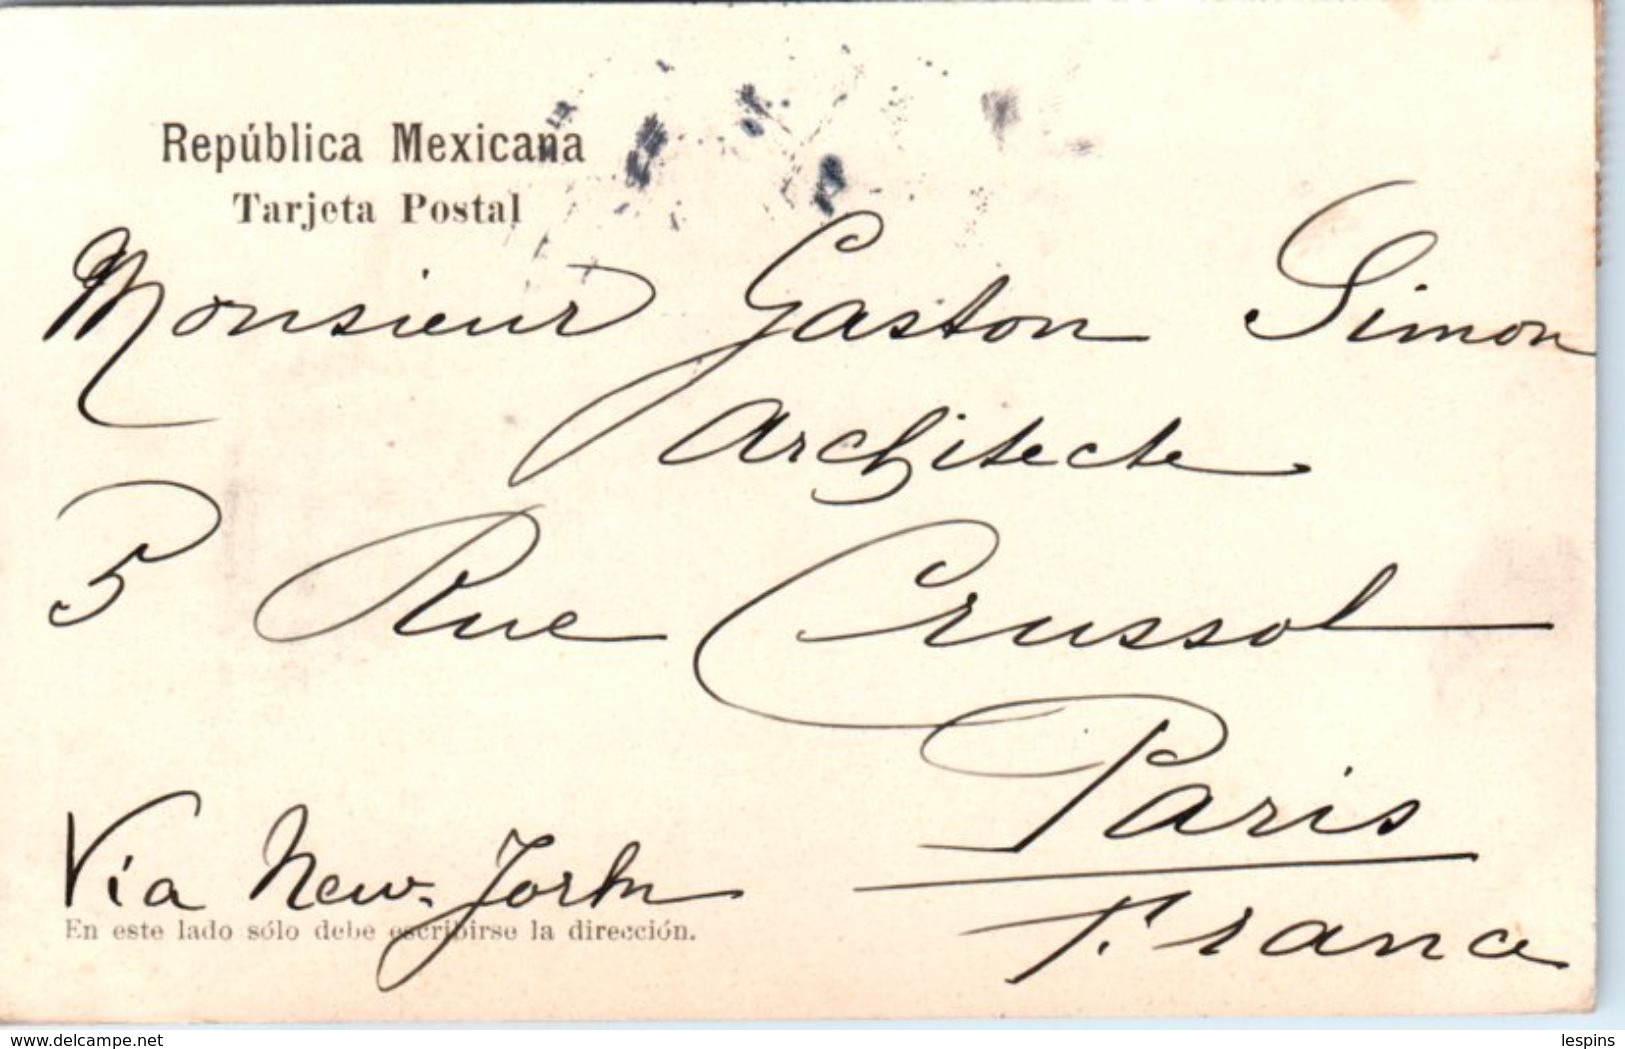 República Mexicana
Tarjeta Postal
Monsieur Gaston Simon
Architecte
5 Rue Crussol
Paris
France
Via New-York
En este lado sólo debe escribirse la dirección.
www.delcampe.net
lespins